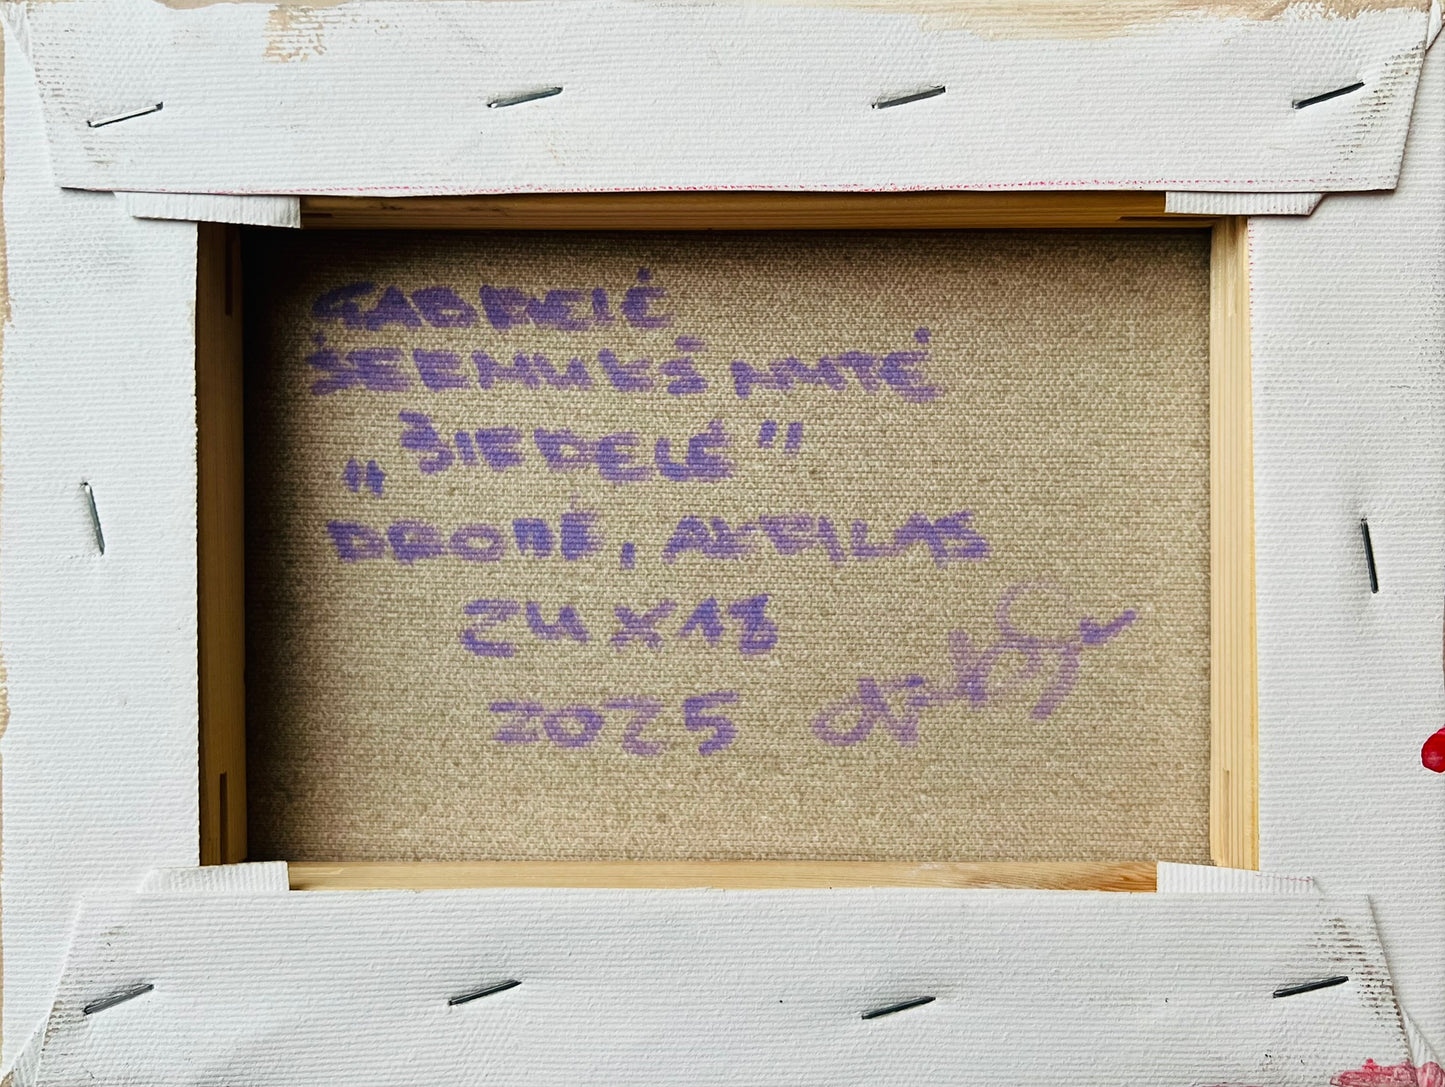 GABRIELĖ
ŠERMUKŠNYTĖ
„ŽIEDELĖ"
DROBĖ, AKRILAS
24 X 18
2025